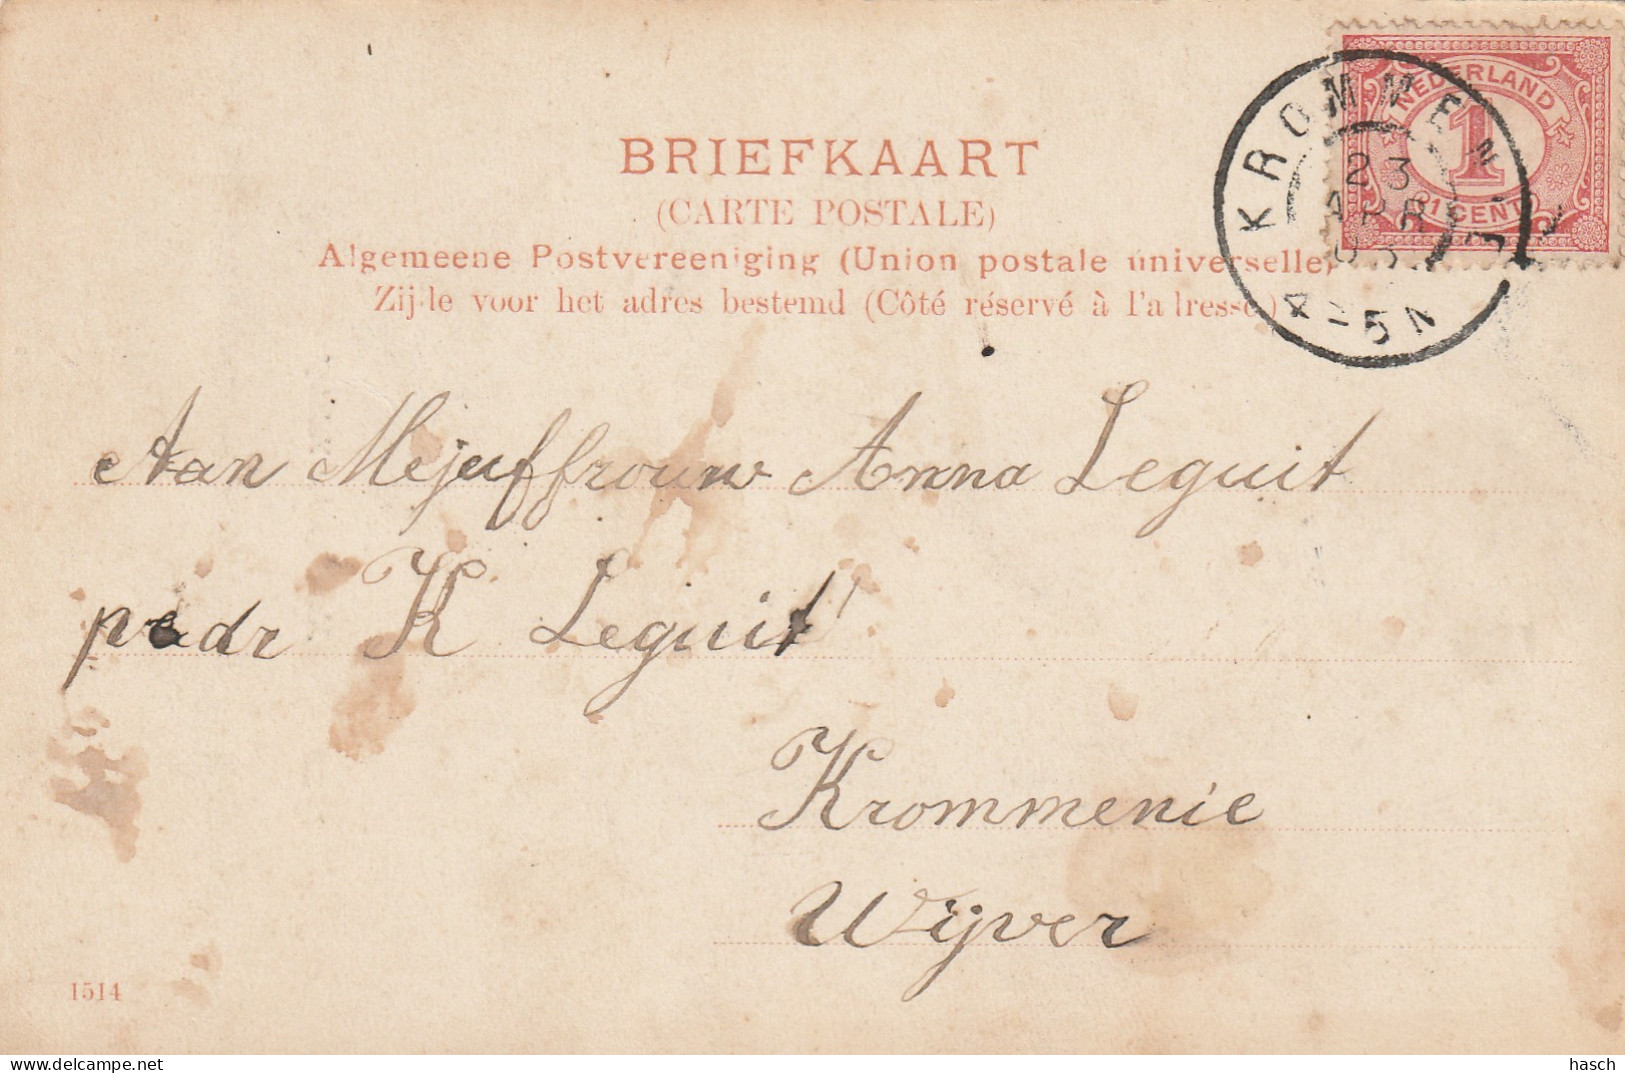 BRIEFKAART
(CARTE POSTALE)
Algemeene Postvereeniging (Union postale universelle)
Zijde voor het adres bestemd (Côté réservé à l'adresse)
NEDERLAND
1
1 CENT
KROMMENIE
23
APR
4-5N
Aan Mejuffrouw Anna Leguit
K Leguit
Krommenie
Wijver
1514
www.delcampe.net
hasch